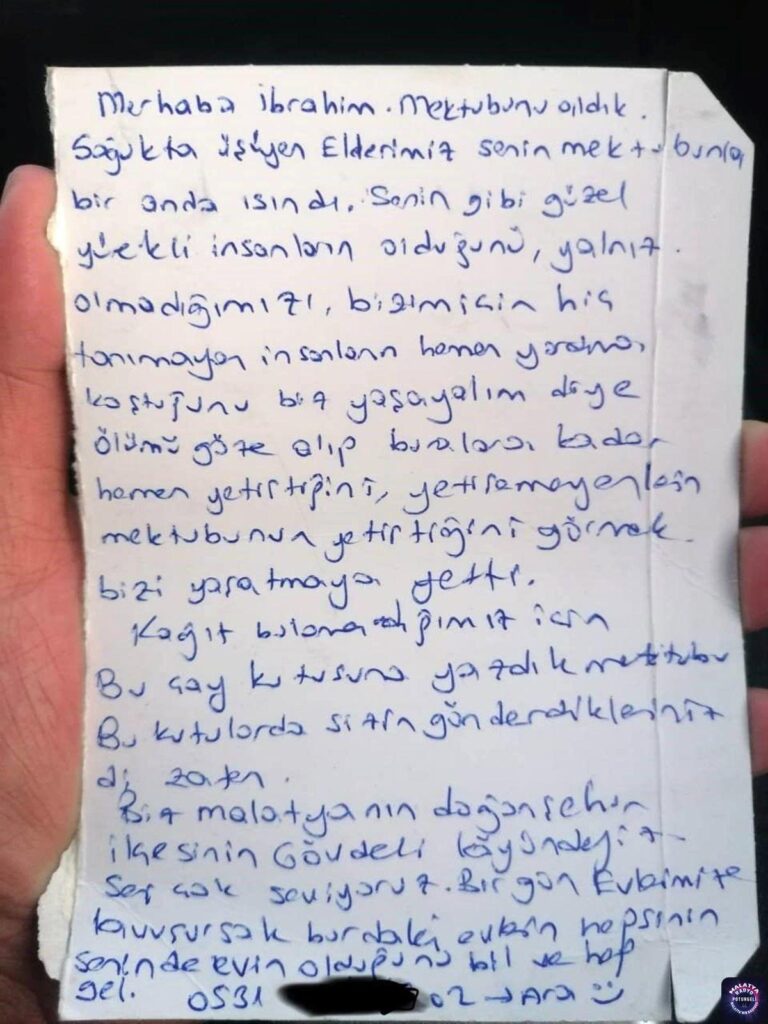 Merhaba ibrahim. Mektubunu aldık.
Soğukta üşüyen Ellerimiz senin mektubunla
bir anda ısındı. Senin gibi güzel
yürekli insanların olduğunu, yalnız
olmadığımızı, bizim için hiç
tanımayan insanların hemen yardıma
koştuğunu biz yaşayalım diye
ölümü göze alıp buralara kadar
hemen yetiştiğini, yetişemeyenlerin
mektubunun yetiştiğini görmek
bizi yaşatmaya yetti.
Kağıt bulamadığımız için
Bu çay kutusuna yazdık mektubu
Bu kutularda sizin gönderdikleriniz
di zaten.
Biz malatyanın doğanşehir
ilçesinin Gövdeli köyündeyiz
Seni çok seviyoruz. Bir gün Evlerimize
kavuşursak burdaki evlerin hepsinin
seninde evin olduğunu bil ve hep
gel. 0531 02 → Ara :)
MALATYA
RADYO
POTÜRGELİ